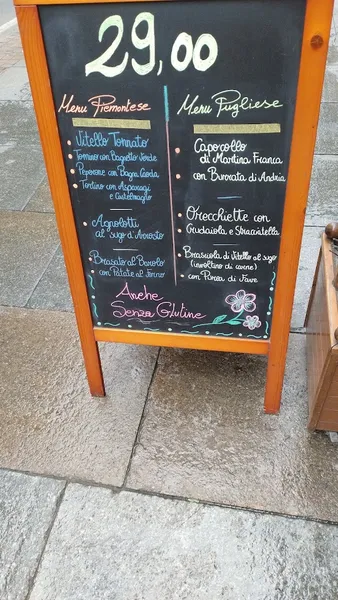 29,00
Menu Piemontese
Vitello Tonnato
Tomino con Bagnetto Verde
Peperone con Bagna Cauda
Tortino con Asparagi
e Castelmagno
Agnolotti
al Sugo d'Arrosto
Brasato al Barolo
con Patate al Forno
Menu Pugliese
Capocollo
di Martina Franca
con Burrata di Andria
Orecchiette con
Crudaiola e Stracciatella
Brasciola di Vitello al sugo
(involtino di carne)
con Purea di Fave
Anche
Senza Glutine